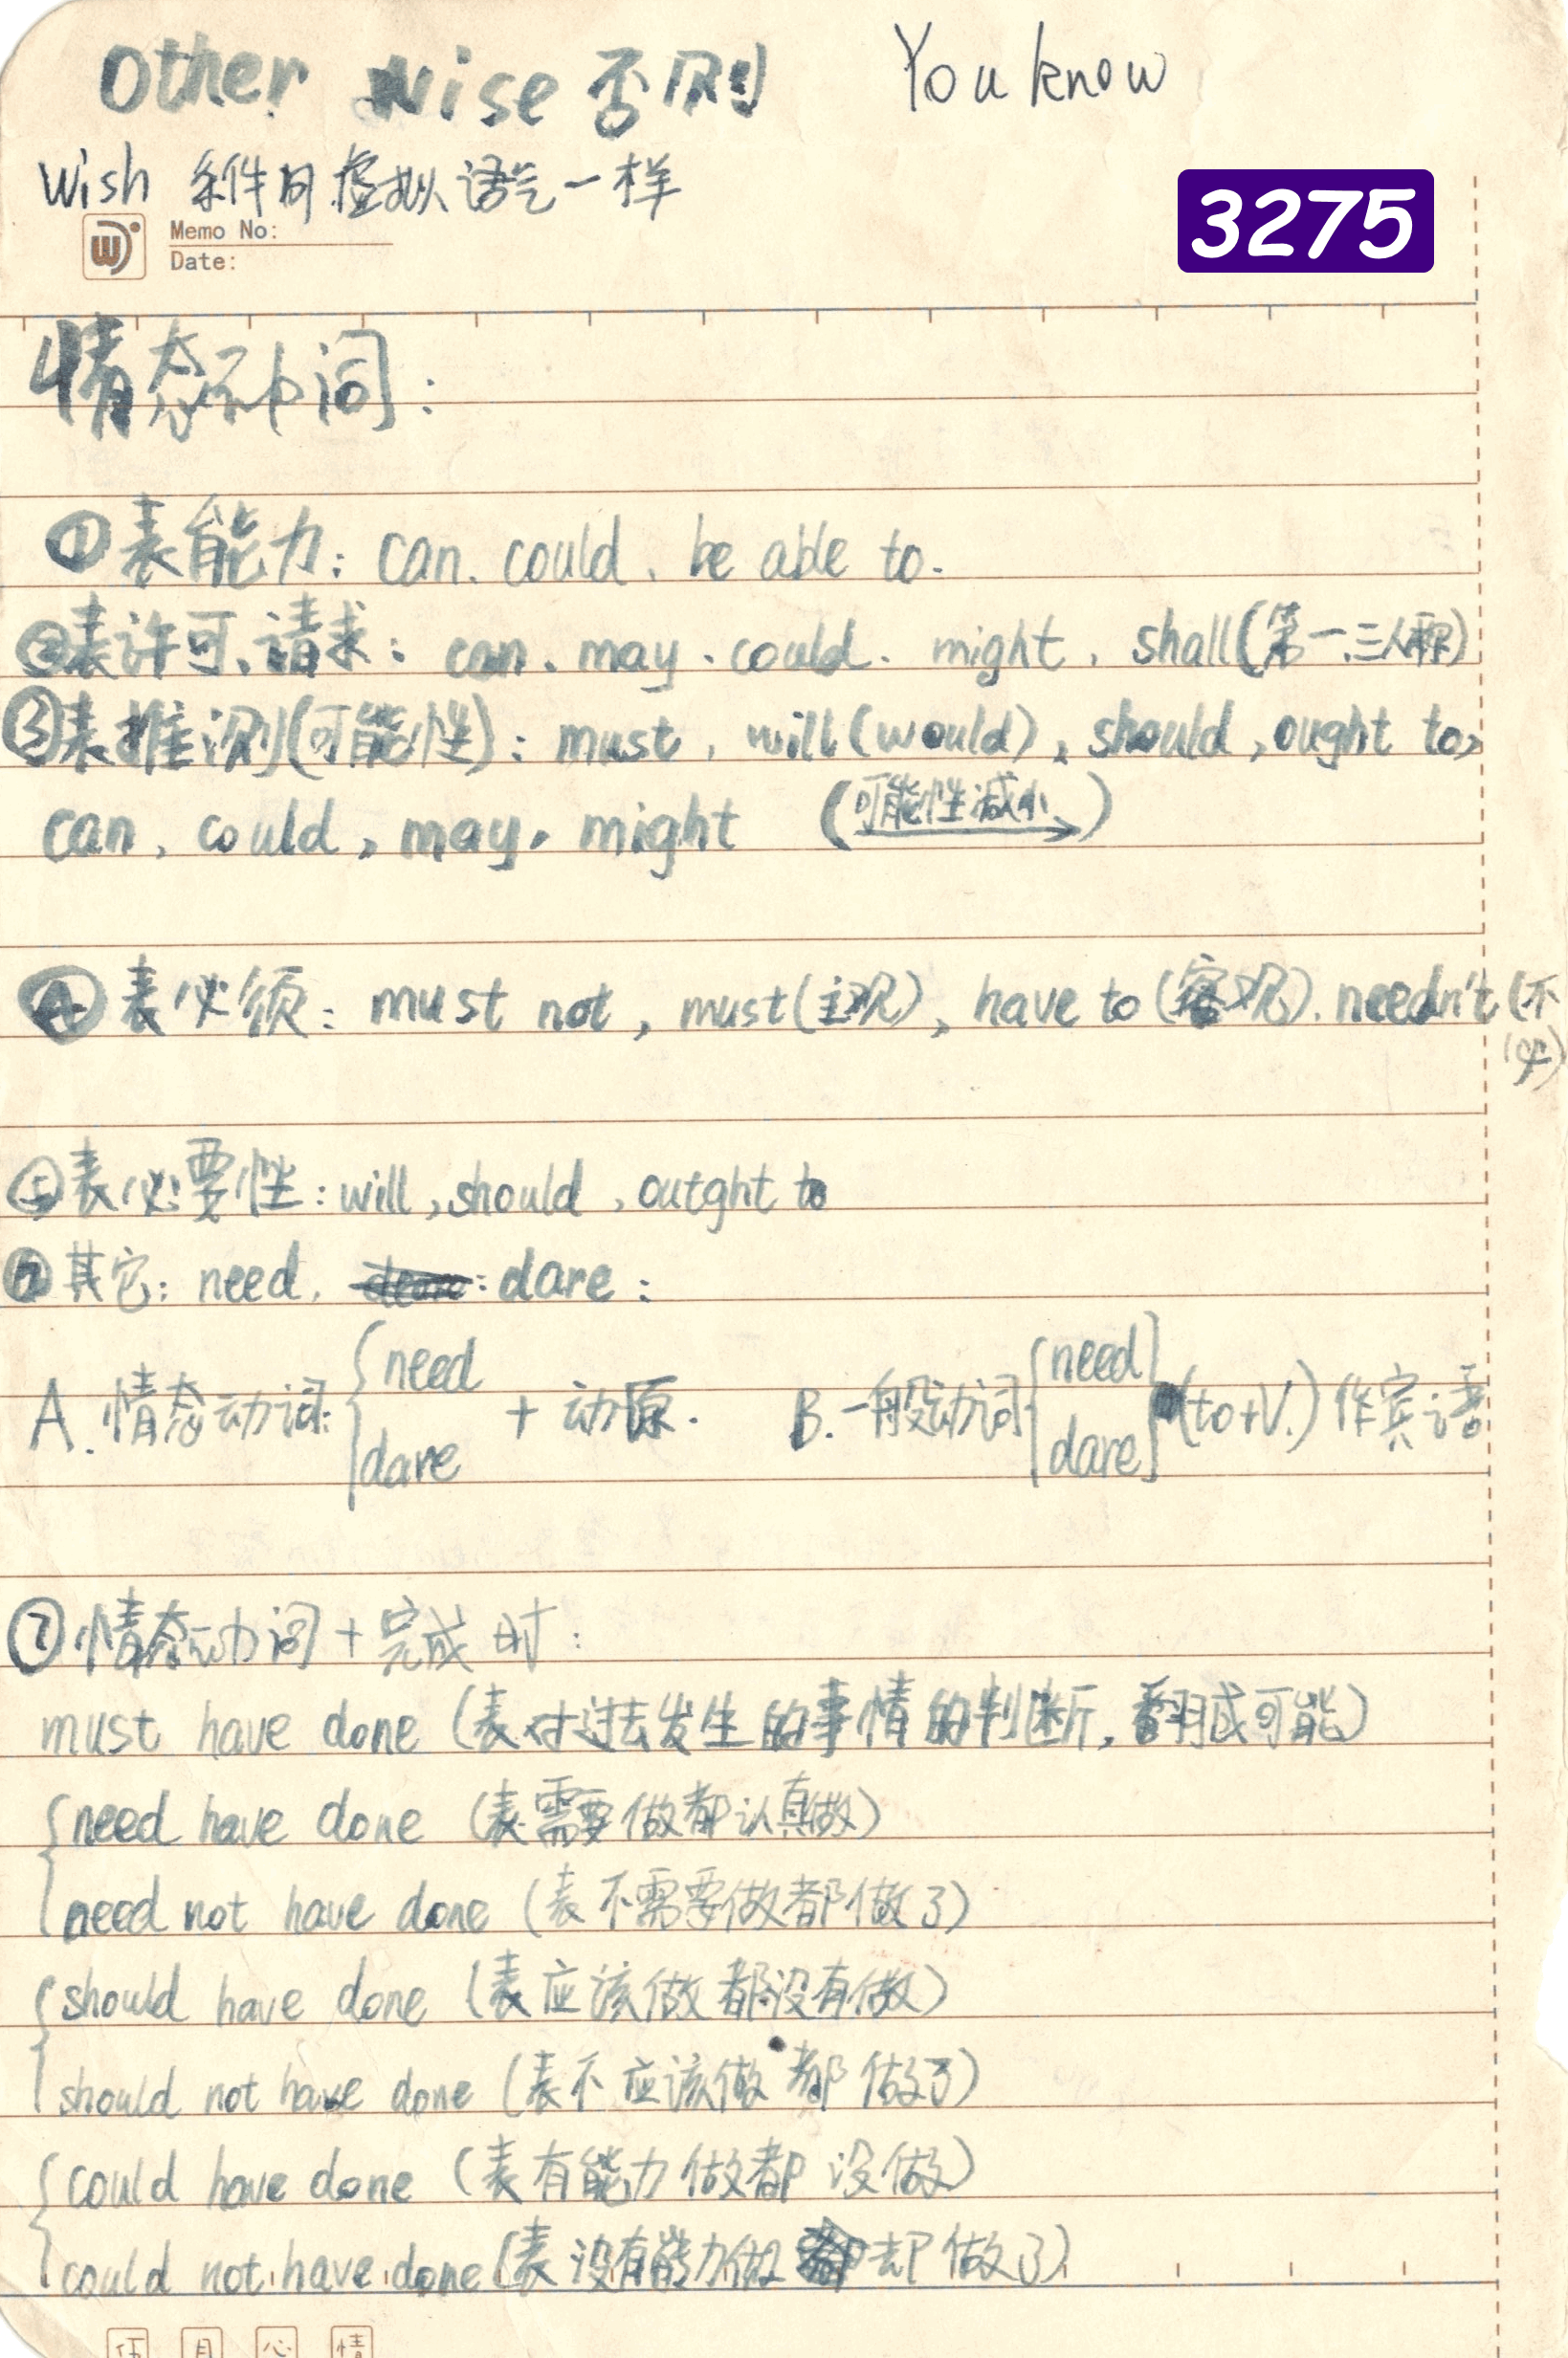 Other wise 否则 You know
wish 条件句虚拟语气一样
3275
Memo No:
Date:
情态动词:
①表能力: can. could. be able to.
②表许可、请求: can. may. could. might. shall(第一.三人称)
③表推测(可能性): must, will(would), should, ought to,
can, could, may, might (可能性减小)
④表必须: must not, must(主观), have to(客观). needn't(不
必)
⑤表必要性: will, should, outght to
⑥其它: need, dare:
A. 情态动词: {need dare + 动原. B. 一般动词{need dare}(to+V.)作宾语
⑦情态动词+完成时:
must have done (表对过去发生的事情的判断, 可能)
need have done (表需要做都认真做)
need not have done (表不需要做都做了)
should have done (表应该做都没有做)
should not have done (表不应该做都做了)
could have done (表有能力做都没做)
could not have done (表没有能力做却做了)
月心情